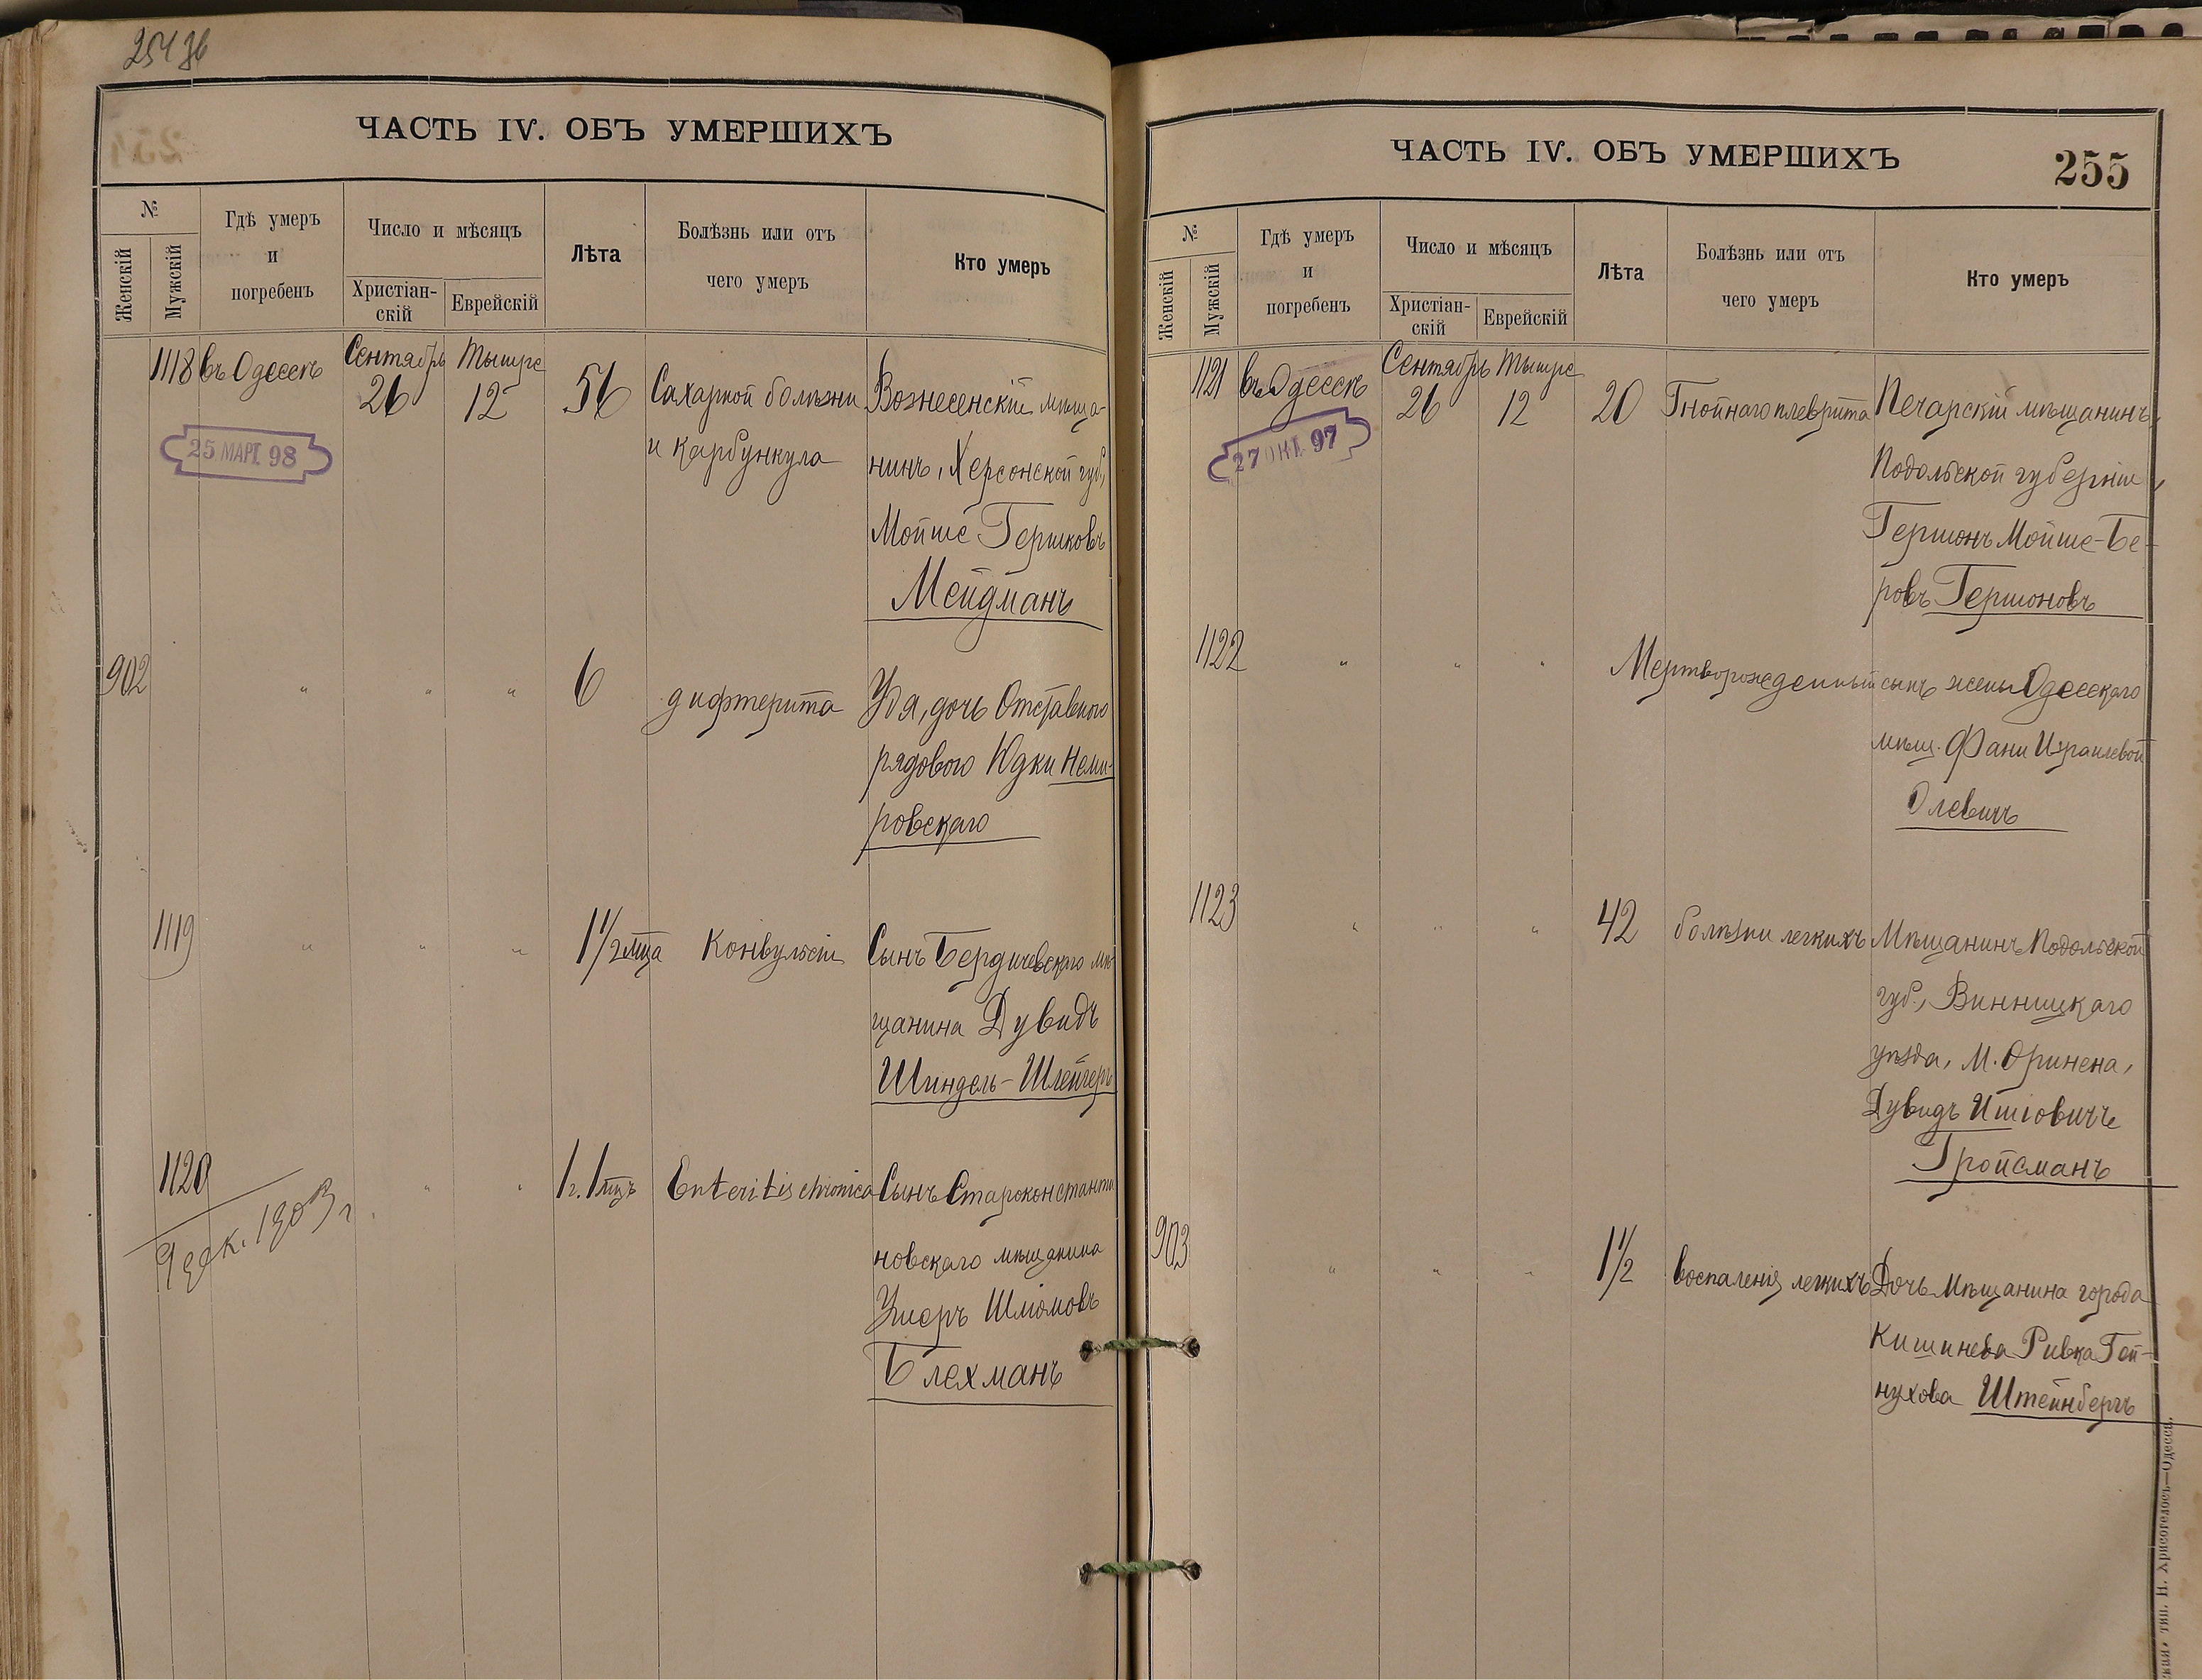 ЧАСТЬ IV. ОБЪ УМЕРШИХЪ
№
Женскій
Мужскій
Гдѣ умеръ
и
погребенъ
Число и мѣсяцъ
Христіан-
скій
Еврейскій
Лѣта
Болѣзнь или отъ
чего умеръ
Кто умеръ
1118 въ Одессѣ Сентябрь 26 Тышре 12 56 Сахарной болѣзни Вознесенскій мѣща-
и карбункула нинъ, Херсонской губ,
25 МАРТ. 98
Мойше Гершковъ
Мейдманъ
902 " " " 6 дифтерита Удя, дочь Отставного
рядового Юдки Неми-
ровскаго
1119 " " " 1 1/2 мца Конвульсіи Сынъ Бердичевскаго мѣ
щанина Дувидъ
Шиндель-Шлейгеръ
1120 " " 1 г. 1 мцъ Enteritis chronica Сынъ Староконстанти
9 дек. 1903 г.
новскаго мѣщанина
Ушеръ Шліомовъ
Блехманъ
ЧАСТЬ IV. ОБЪ УМЕРШИХЪ
255
№
Женскій
Мужскій
Гдѣ умеръ
и
погребенъ
Число и мѣсяцъ
Христіан-
скій
Еврейскій
Лѣта
Болѣзнь или отъ
чего умеръ
Кто умеръ
1121 въ Одессѣ Сентябрь 26 Тышре 12 20 Гнойнаго плеврита Печарскій мѣщанинъ,
27 ОКТ. 97
Подольской губерніи,
Гершонъ Мойше-Бе-
ровъ Гершоновъ
1122 " " " Мертворожденный сынъ жены Одесскаго
мѣщ. Фани Израилевой
Олевичъ
1123 " " " 42 болѣзни легкихъ Мѣщанинъ Подольской
губ., Винницкаго
уѣзда, М. Оринена,
Дувидъ Иціовичъ
Гройсманъ
903 " " " 1 1/2 воспаленія легкихъ Дочь мѣщанина города
Кишинева Ривка Гей-
нухова Штейнбергъ
тип. Н. Хрисогелосъ—Одесса.